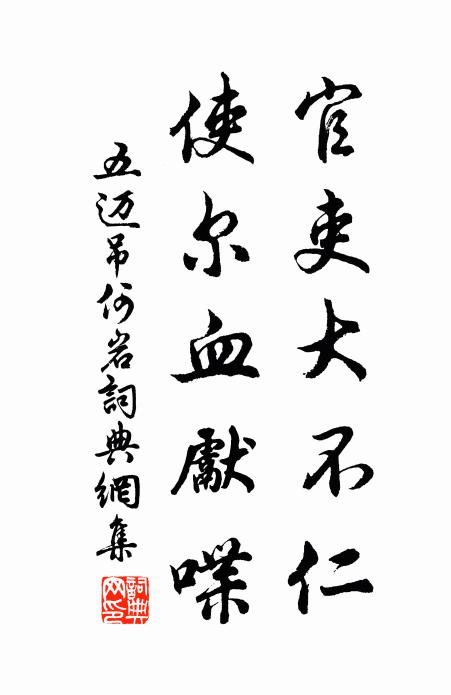 官吏大不仁
使尔血獻喋
五迈吊何岩詞典網集
詞典網印